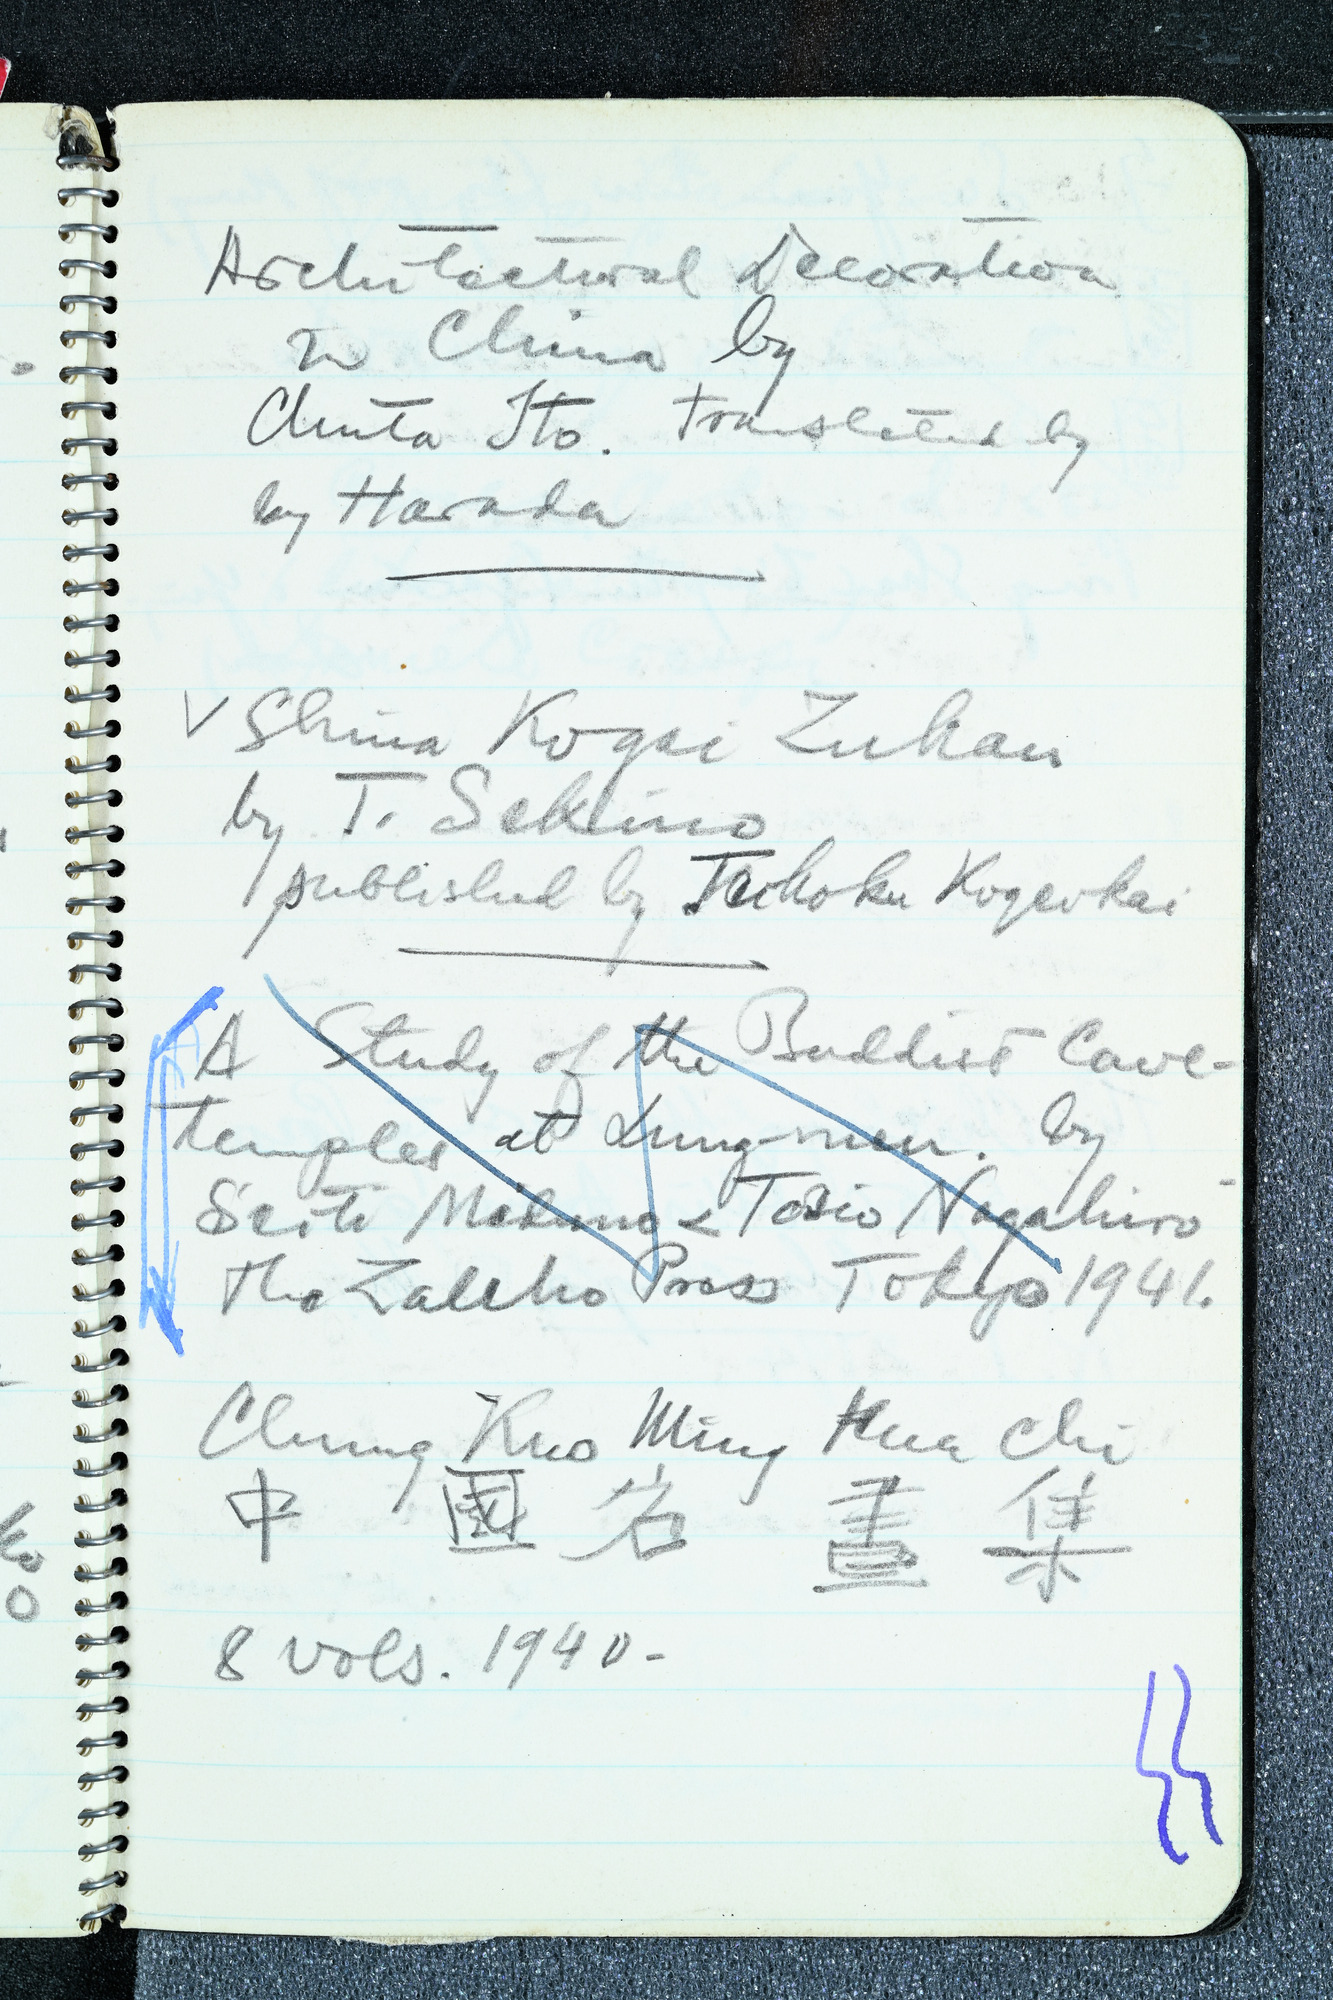 Architectural Decoration
in China by
Chuta Ito. Translated by
by Harada
Shina Kogei Zukan
by T. Sekino
published by Teikoku Kogeikai
A Study of the Buddist Cave-
temples at Lung-men. by
Seiti Midzuno & Tosio Nagahiro
the Zauho Press Tokyo 1941.
Chung Kuo Ming Hua Chi
中 國 名 畫 集
8 vols. 1940-